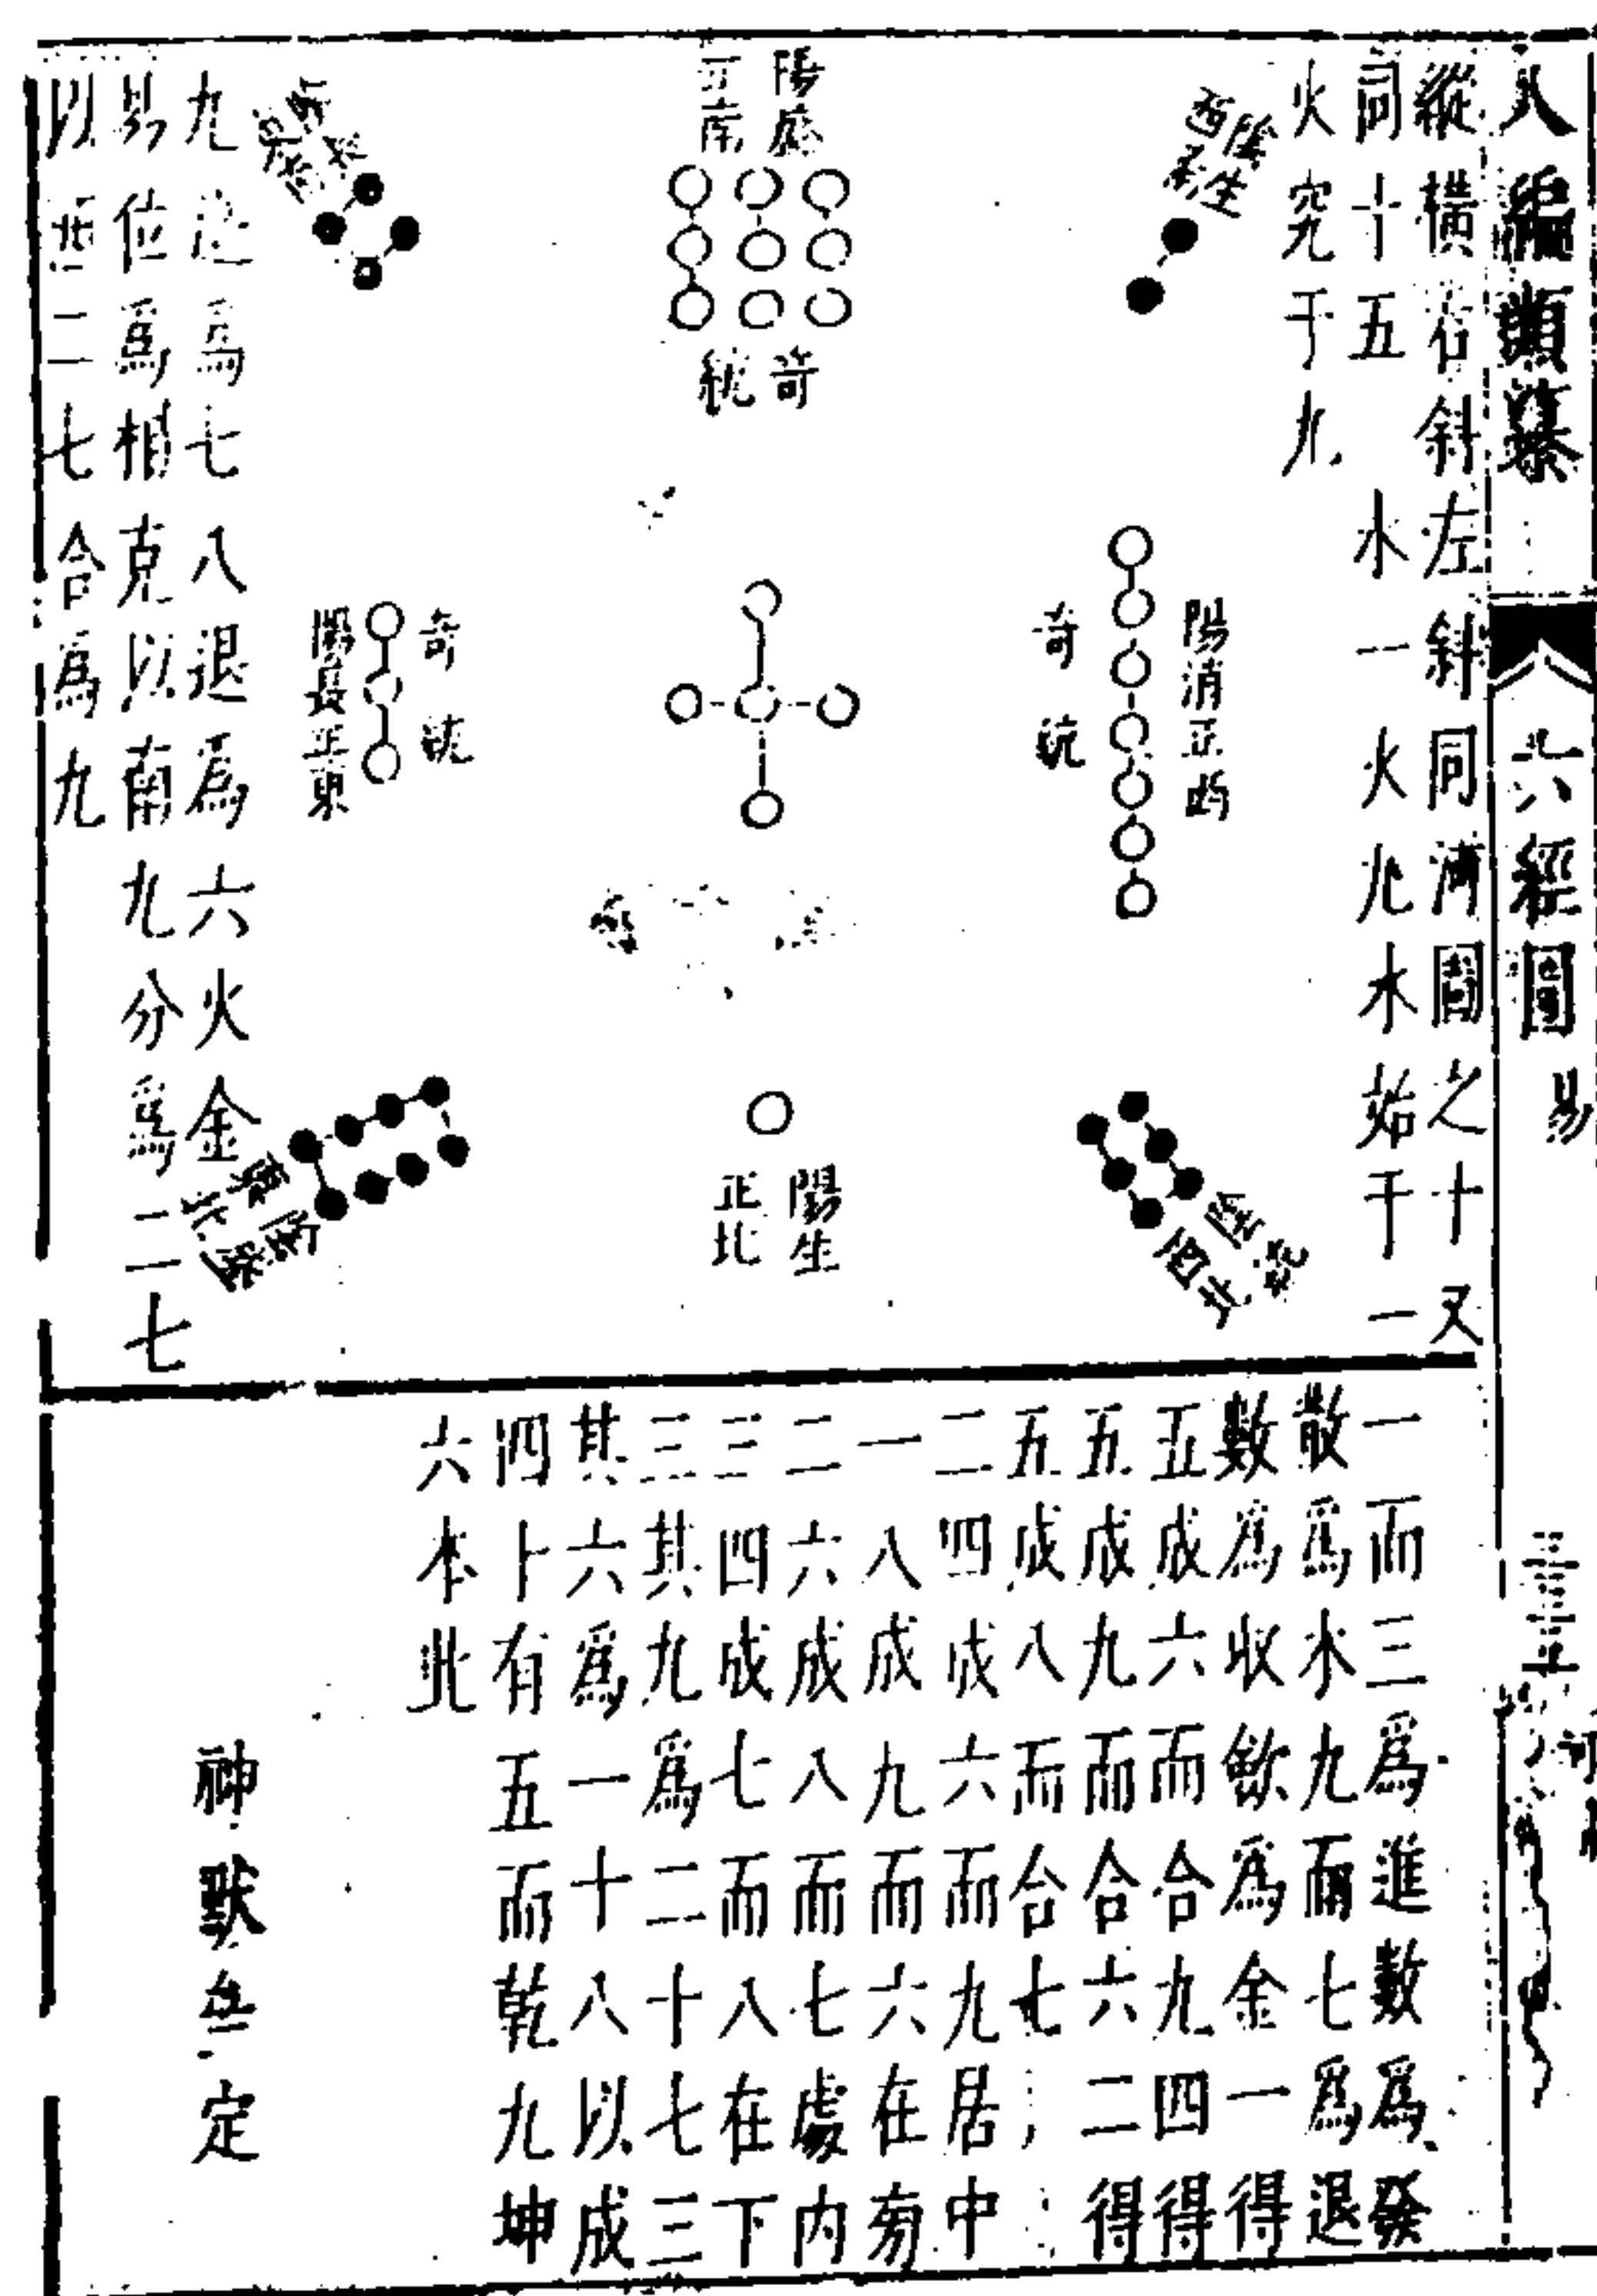 八編類纂
六經圖
易
縱橫右斜左斜同河圖之十又
同十五 水一火九水始于一
火究于九
陰生
西南
陽極
正南
奇
統
陽消正西
奇統
奇統
陽長正東
陽生
正北
西北
九退為七八退為六火金
易位為相克以南九分為二七
以西二七合為九
一而三為進數為發
散為水九而七為退
數為收斂為金一得
五成六而合九四得
五成九而合六二得
五成八而合七
二四成六而九居中
一八成九而六在旁
二六成八而七處內
三四成七而八在下
三其九為二十七三
其六為一十八以成
四十有五而乾九坤
六本此
神默叁定